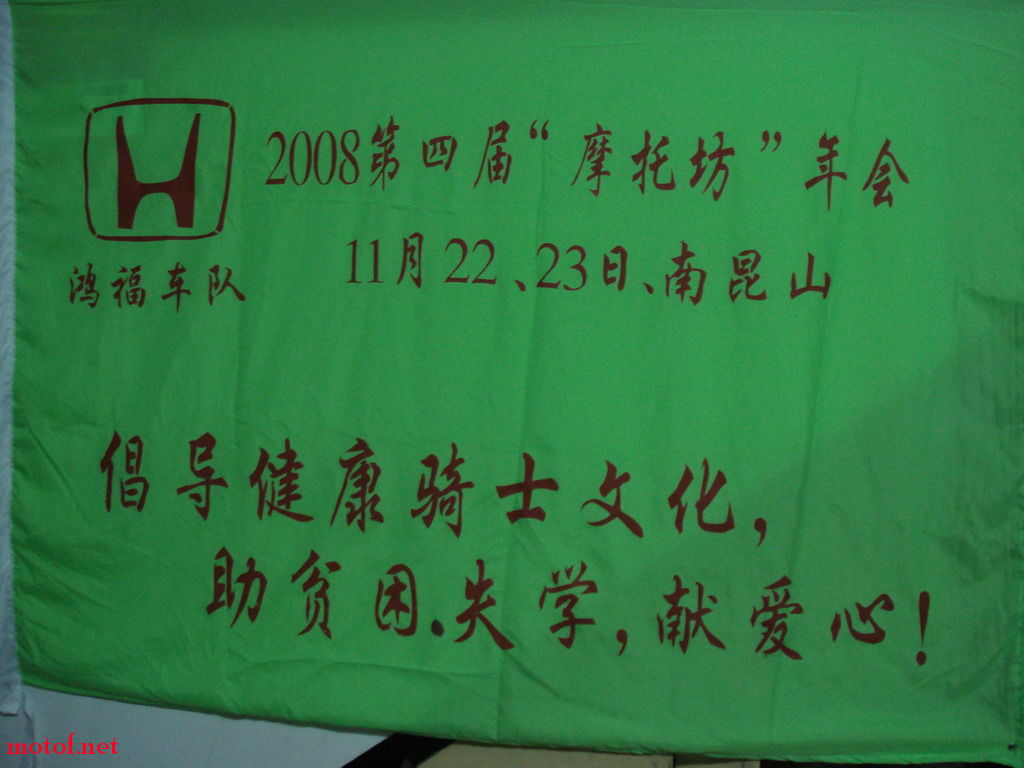 2008第四届“摩托坊”年会
鸿福车队
11月22、23日、南昆山
倡导健康骑士文化，
助贫困.失学，献爱心！
motof.net